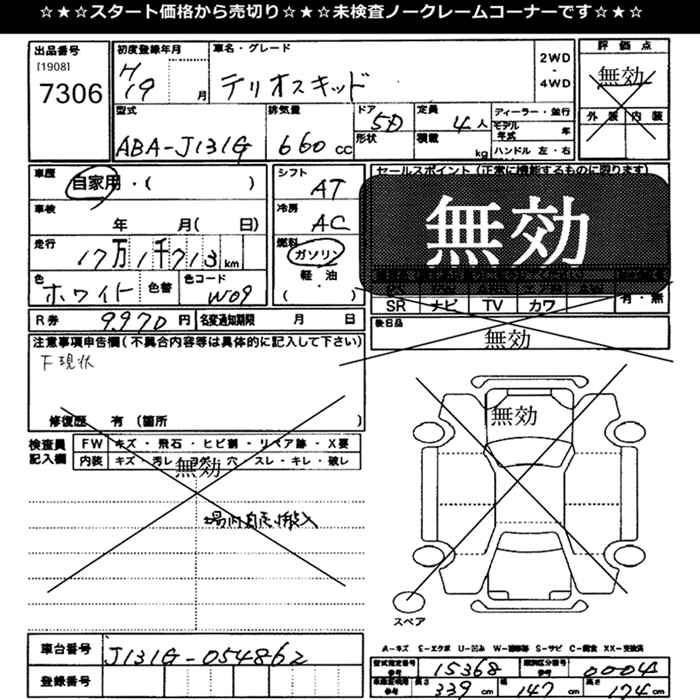 ☆★☆★スタート価格から売切り☆★☆★未検査ノークレームコーナーです☆★☆
出品番号 初度登録年月 車名・グレード 2WD ・ 4WD 評価点
[1908]
7306 H19 月 テリオスキッド 無効
型式 排気量 ドア 形状 定員 積載 ディーラー・並行 外装 内装
ABA-J131G 660 cc 5D 4人 kg モデル年式 年
ハンドル 左・右
車歴 自家用・( ) シフト AT セールスポイント (正常に機能するものに限ります)
車検 年 月( 日) 冷房 AC 無効
走行 17万1千713km 燃料 ガソリン
色 ホワイト 色替 色コード W09 軽・油
( ) SR ナビ TV カワ 有・無
R券 9970円 名変通知期限 月 日 後日品
注意事項申告欄(不具合内容等は具体的に記入して下さい) 無効
下現状
修復歴 有 (箇所 ) 無効
検査員記入欄 FW キズ・飛石・ヒビ割・リペア跡・X要
内装 キズ・汚レ・コゲ・穴・スレ・キレ・破レ
無効
場内自走搬入
スペア
車台番号 J131G-054862 A-キズ E-エクボ U-凹み W-補修等 S-サビ C-腐食 XX-交換済
登録番号 型式指定番号 参考 15368 類別区分番号 参考 0004
長さ 339 cm 幅 147 cm 高さ 174 cm